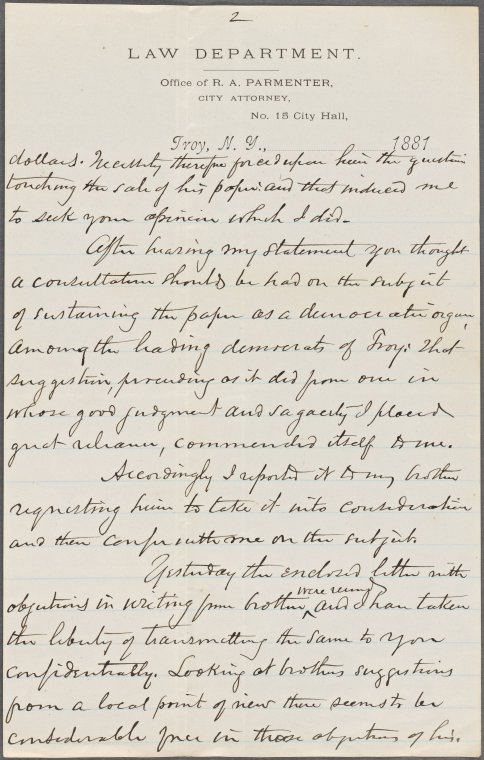 2
LAW DEPARTMENT.
Office of R. A. PARMENTER,
CITY ATTORNEY,
No. 15 City Hall,
Troy, N. Y., 1881
dollars. Necessity therefore forced upon him the question
touching the sale of his paper: and that induced me
to seek your opinion which I did.
After hearing my statement you thought
a consultation should be had on the subject
of sustaining the paper as a democratic organ,
among the leading democrats of Troy. That
suggestion, proceeding as it did from one in
whose good judgment and sagacity I placed
great reliance, commended itself to me.
Accordingly I reported it to my brother
requesting him to take it into consideration
and then confer with me on the subject.
Yesterday the enclosed letter with
objections in writing from brother, were received and I have taken
the liberty of transmitting the same to you
confidentially. Looking at brothers suggestions
from a local point of view there seems to be
considerable force in those objections of his.